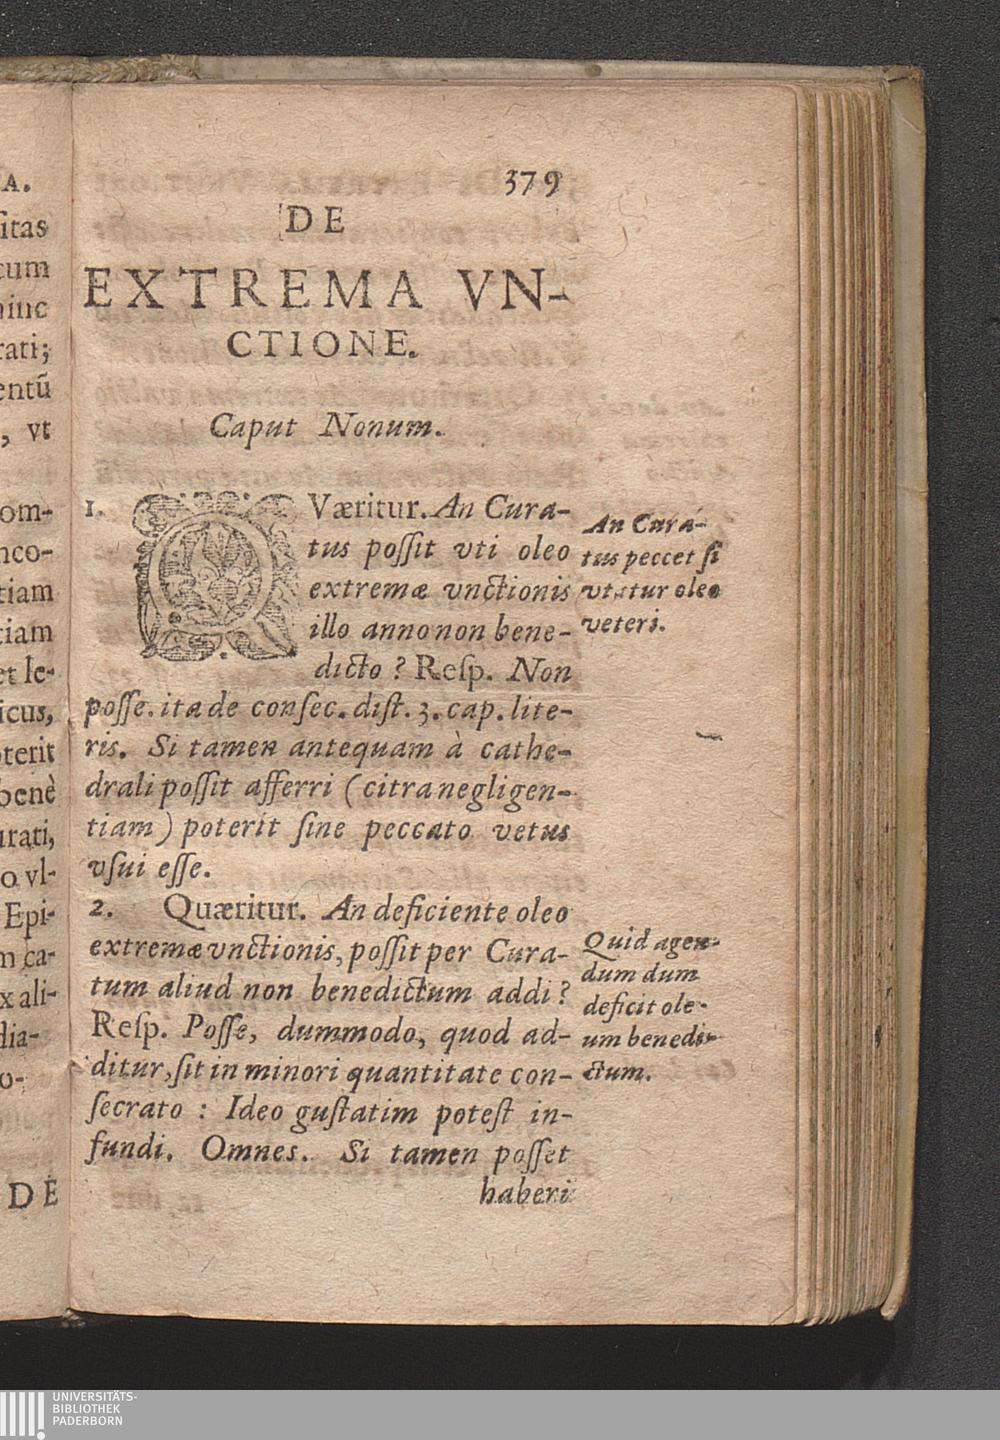 A.
ſitas
cum
hinc
rati;
entũ
, vt
om-
nco-
tiam
tiam
et le-
icus,
oterit
benè
urati,
o vl-
Epi-
m ca-
x ali-
dia-
o-
DE
379
DE
EXTREMA VN-
CTIONE.
Caput Nonum.
1. QVæritur. An Cura-
tus poſſit vti oleo
extremæ vnctionis
illo anno non bene-
dicto? Reſp. Non
poſſe. ita de conſec. diſt. 3. cap. lite-
ris. Si tamen antequam à cathe-
drali poſſit afferri (citra negligen-
tiam) poterit ſine peccato vetus
vſui eſſe.
An Cura-
tus peccet ſi
vtatur oleo
veteri.
2. Quæritur. An deficiente oleo
extremæ vnctionis, poſſit per Cura-
tum aliud non benedictum addi?
Reſp. Poſſe, dummodo, quod ad-
ditur, ſit in minori quantitate con-
ſecrato : Ideo guſtatim poteſt in-
fundi. Omnes. Si tamen poſſet
haberi
Quid agen-
dum dum
deficit ole-
um benedi-
ctum.
UNIVERSITÄTS-
BIBLIOTHEK
PADERBORN